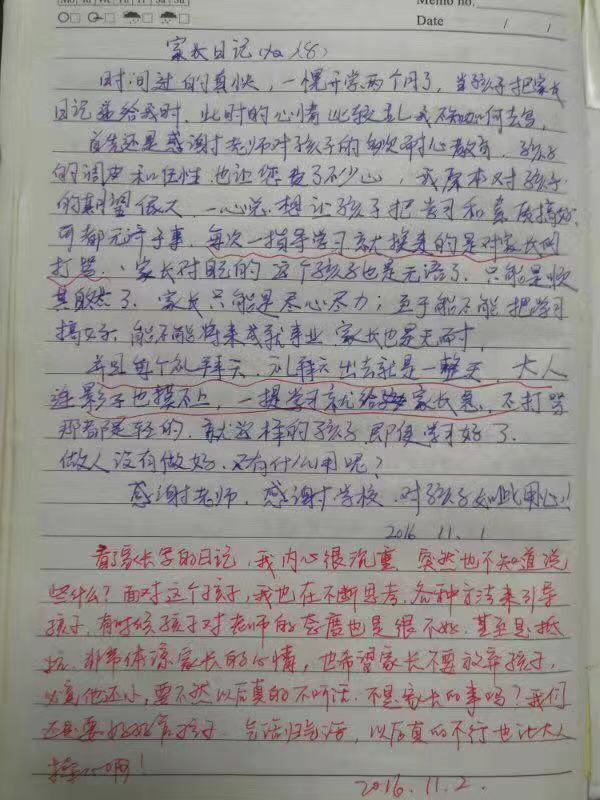 Mo Tu We Th Fr Sa Su
Memo no.
Date / /
家长日记
时间过的真快,一愰开学两个月了,当孩子把家长
日记递给我时,此时的心情比较乱我不知如何去写,
首先还是感谢老师对孩子的多次耐心教育,孩子
的调皮和任性也让您费了不少心,我原本对孩子
的期望很大,一心想让孩子把学习和素质搞好,
可都无济于事,每次一指导学习就换来的是对家长的
打骂,家长对眼的这个孩子也是无语了,只能是顺
其自然了,家长只能是尽心尽力;至于能不能把学习
搞好,能不能将来成就事业家长也是无耐,
并且每个礼拜六、礼拜六出去就是一整天,大人
连影子也摸不上,一提学习就给家长急,不打骂
那都是轻的,就这样的孩子即便学习好了,
做人没有做好,又有什么用呢?
感谢老师,感谢学校,对孩子如此用心!
2016 11. 1
看了家长写的日记,我内心很沉重,突然也不知道说
些什么?面对这个孩子,我也在不断思考,各种方法来引导
孩子,有时候孩子对老师的态度也是很不好,甚至是抵
抗,非常体谅家长的心情,也希望家长不要放弃孩子,
必竟他还小,要不然以后真的不听话,不是家长的事吗?我们
还是要好好管孩子,气话归气话,以后真的不行也让大人
操心啊!
2016.11.2.